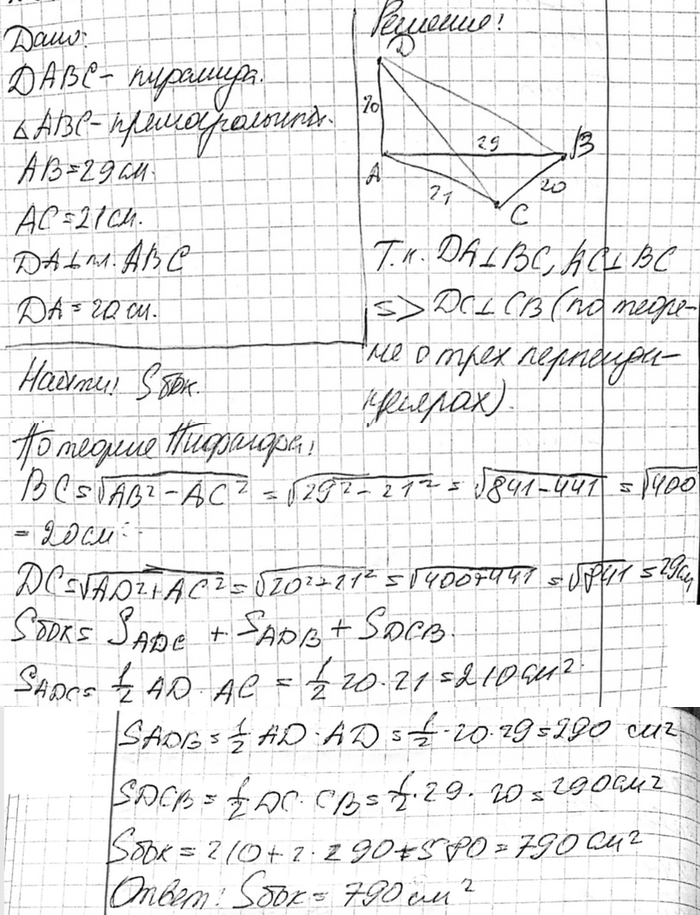 Дано:
DABC - пирамида.
△ABC - прямоугольный.
AB = 29 см.
AC = 21 см.
DA ⊥ пл. ABC
DA = 20 см.
Найти: Sбок.
Решение:
D
20
29
B
A
21
20
C
Т.к. DA ⊥ BC, AC ⊥ BC
=> DC ⊥ CB (по теоре-
ме о трех перпенди-
кулярах).
По теореме Пифагора:
BC = √AB² - AC² = √29² - 21² = √841 - 441 = √400
= 20 см
DC = √AD² + AC² = √20² + 21² = √400 + 441 = √841 = 29 см
Sбок = S_ADC + S_ADB + S_DCB.
S_ADC = 1/2 AD · AC = 1/2 20 · 21 = 210 см².
S_ADB = 1/2 AD · AD = 1/2 · 20 · 29 = 290 см²
S_DCB = 1/2 DC · CB = 1/2 · 29 · 20 = 290 см²
Sбок = 210 + 2 · 290 + 580 = 790 см²
Ответ: Sбок = 790 см²